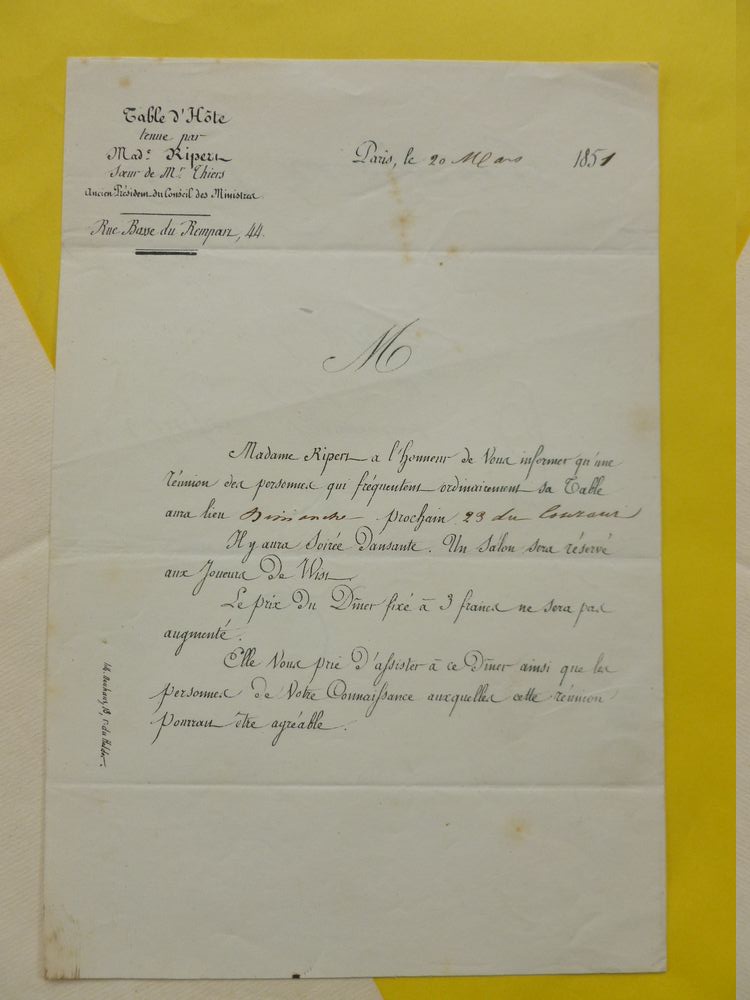 Table d'Hôte
tenue par
Made Ripert
Sœur de Mr Thiers
Ancien Président du Conseil des Ministres
Rue Basse du Rempart, 44.
Paris, le 20 Mars 1851
M
Madame Ripert a l'honneur de Vous informer qu'une
réunion des personnes qui fréquentent ordinairement sa Table
aura lieu Dimanche prochain 23 du Courant
Il y aura Soirée dansante. Un Salon sera réservé
aux Joueurs de Wist
Le prix du Dîner fixé à 3 francs ne sera pas
augmenté.
Elle Vous prie d'assister à ce Dîner ainsi que les
personnes de Votre Connaissance auxquelles cette réunion
pourrait être agréable.
r. du Helder.